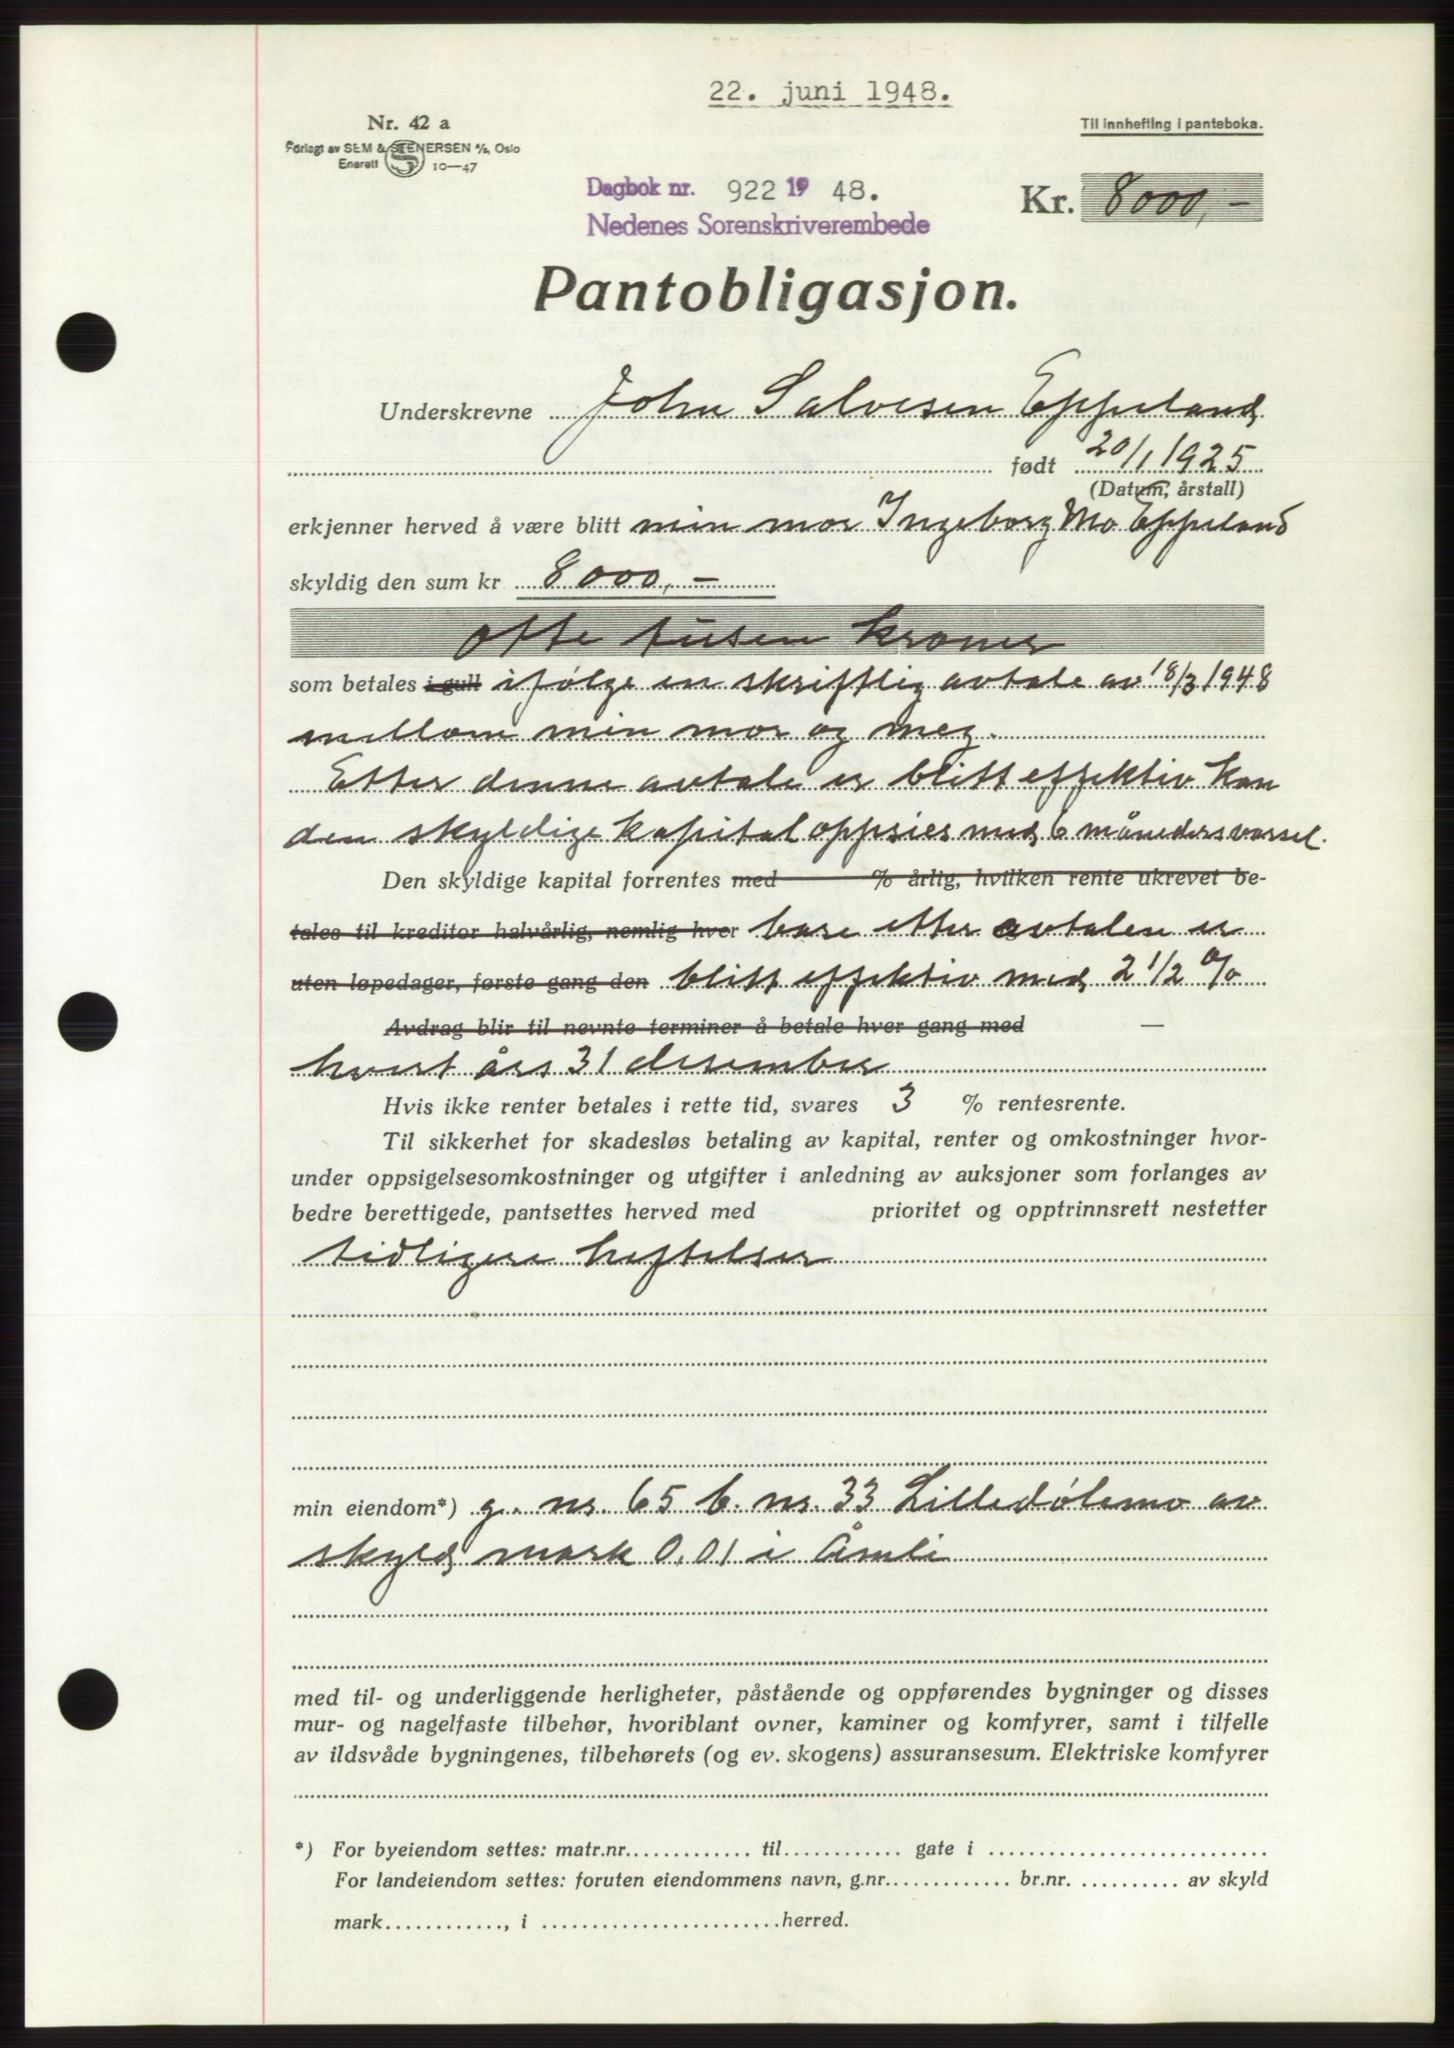 22. juni 1948.
Nr. 42 a
Til innhefting i panteboka.
Forlagt av SEM & STENERSEN A/S, Oslo
Enerett 10—47
Dagbok nr. 922 19 48.
Kr. 8000,-
Nedenes Sorenskriverembede
Pantobligasjon.
Underskrevne John Salvesen Eppeland
født 20/1 1925
(Datum, årstall)
erkjenner herved å være blitt min mor Ingeborg Mo Eppeland
skyldig den sum kr 8000,-
otte tusen kroner
som betales i gull ifølge en skriftlig avtale av 18/3 1948
mellom min mor og meg.
Etter denne avtale er blitt effektiv kan
den skyldige kapital oppsies med 6 måneders varsel.
Den skyldige kapital forrentes med % årlig, hvilken rente ukrevet be-
tales til kreditor halvårlig, nemlig hver bare etter avtalen er
uten løpedager, første gang den blitt effektiv med 2 1/2 %
Avdrag blir til nevnte terminer å betale hver gang med —
hvert års 31 desember
Hvis ikke renter betales i rette tid, svares 3 % rentesrente.
Til sikkerhet for skadesløs betaling av kapital, renter og omkostninger hvor-
under oppsigelsesomkostninger og utgifter i anledning av auksjoner som forlanges av
bedre berettigede, pantsettes herved med prioritet og opptrinnsrett nestetter
tidligere heftelser
min eiendom*) g. nr. 65 b. nr. 33 Lilledølemo av
skyld mark 0,01 i Åmli
med til- og underliggende herligheter, påstående og oppførendes bygninger og disses
mur- og nagelfaste tilbehør, hvoriblant ovner, kaminer og komfyrer, samt i tilfelle
av ildsvåde bygningenes, tilbehørets (og ev. skogens) assuransesum. Elektriske komfyrer
*) For byeiendom settes: matr.nr. til gate i
For landeiendom settes: foruten eiendommens navn, g.nr. br.nr. av skyld
mark , i herred.